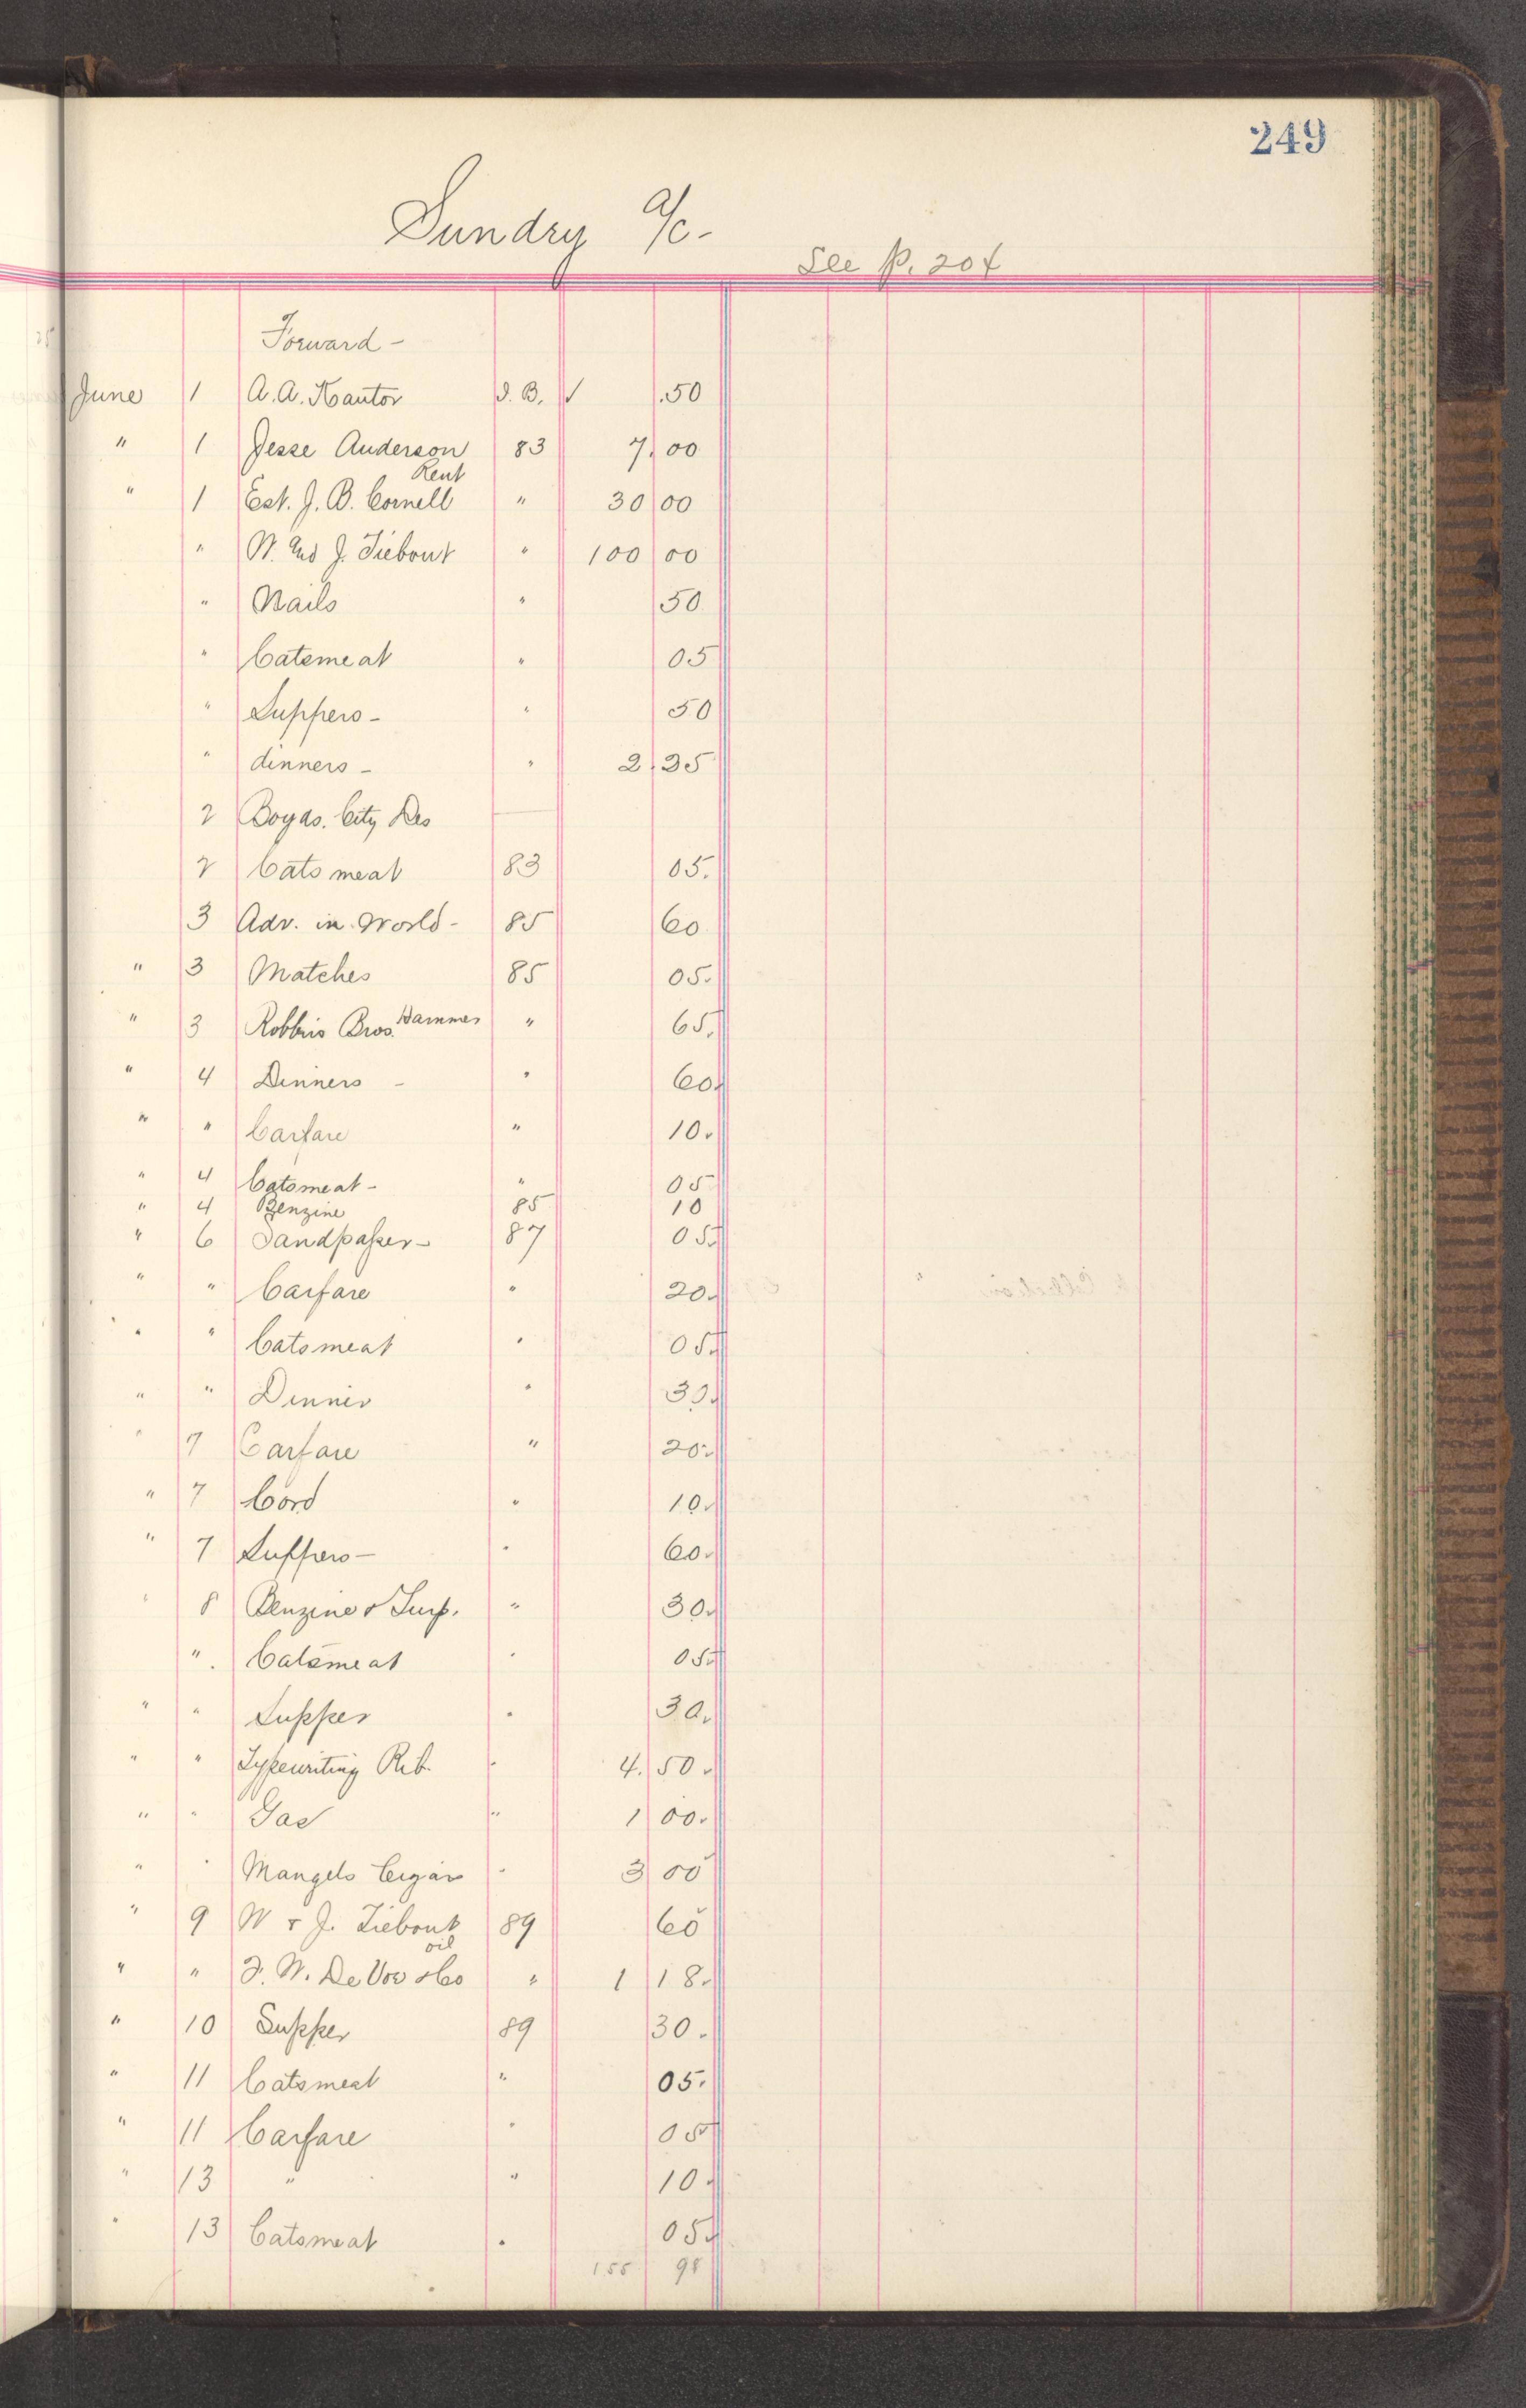 249
Sundry a/c-
See p. 204
Forward -
June 1 A. A. Kantor J. B. ✓ .50
" 1 Jesse Anderson 83 7.00
Rent
" 1 Est. J. B. Cornell " 30 00
" W. and J. Tiebout " 100 00
" Nails " 50
" Catsmeat " 05
" Suppers - " 50
" dinners - " 2.25
2 City
2 Cats meat 83 05.
3 Adv. in World - 85 60
" 3 Matches 85 05.
" 3 Robbins Bros. Hammer " 65.
" 4 Dinners - " 60.
" " Carfare " 10.
" 4 Catsmeat - " 05
" 4 Benzine 85 10
" 6 Sandpaper - 87 05.
" " Carfare " 20.
" " Catsmeat " 05.
" " Dinner " 30.
" 7 Carfare " 20.
" 7 Cord " 10.
" 7 Suppers - " 60.
" 8 Benzine & Turp. " 30.
" Catsmeat " 05.
" " Supper " 30.
" " Typewriting Rib. " 4.50.
" " Gas " 1 00.
" " Mangels Cigars " 3 00
" 9 W & J. Tiebout 89 60
oil
" " F. W. De Voe & Co " 1 18.
" 10 Supper 89 30.
" 11 Catsmeat " 05.
" 11 Carfare " 05
" 13 " " 10.
" 13 Catsmeat " 05.
155 98